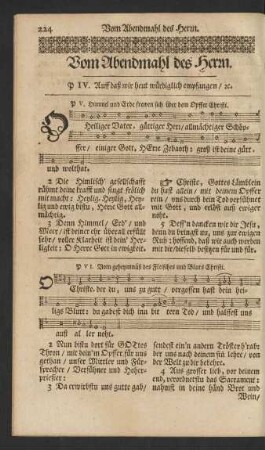 224 Vom Abendmahl des Herrn.
Vom Abendmahl des Herrn.
P IV. Auff daß wir heut würdiglich empfangen / ꝛc.
P V. Himmel und Erde freuen sich über dem Opffer Christi.
O Heiliger Vater, güttiger Herr / allmächtiger Schöp-
fer / einiger Gott, HErr Zebaoth: groß ist deine gütt.
und wolthat.
2 Die Himlisch' gesellschafft
rühmt deine krafft und singt frölich
mit macht: Heylig, Heylig, Hey-
lig und ewig bistu / Herre Gott all-
mächtig.
3 Denn Himmel / Erd / und
Meer / ist deiner ehr überall erfüllt
sehr / voller Klarheit ist dein' Her-
ligkeit: O Herre Gott in ewigkeit.
4 O Christe, Gottes Lämblein
du hast allein / mit deinem opffer
rein / uns durch dein Tod versühnet
mit Gott, und erlöst aus ewiger
noth.
5 Deß'n dancken wir dir Jesu,
denn du bist unser trost und ewige
Ruh: hoffend, daß wir auch werden
mit dir in der herrligkeit besitzen gar
P VI. Vom geheymnüß des Fleisches und Bluts Christi.
O Christe, der du, uns zu gutt / vergossen hast dein hei-
ligs Blutt: du gabest dich inn bittern Tod, und halffest uns
auß aller noht.
2 Nun bistu dort für GOttes
Thron / mit dein'm Opffer für uns
gethan / unser Mittler und Für-
sprecher / Versühner und Hoher-
priester:
3 Da erwirbstu uns gutte gab /
sendest ein'n andern Tröster h'rab:
der uns nach deinem sin lehr / von
der Welt zu dir bekehr.
4 Aus grosser lieb / vor deinem
end, verordnestu das Sacrament:
nahmst in deine händ Brot und
Wein /